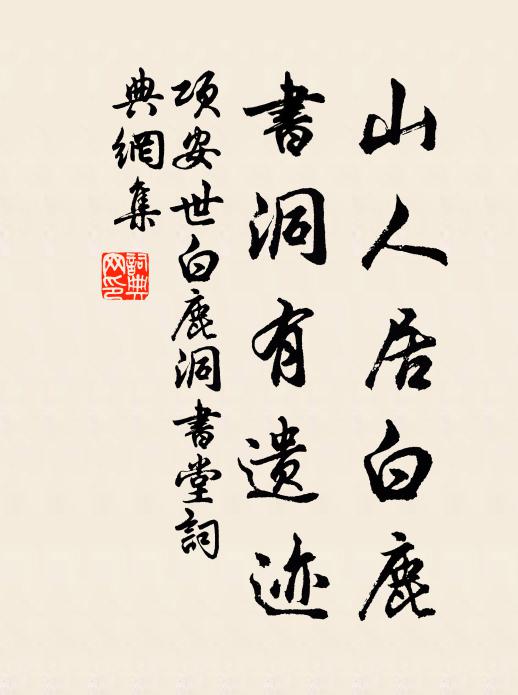 山人居白鹿
書洞有遗迹
項安世白鹿洞書堂詞
典網集
詞典
网印